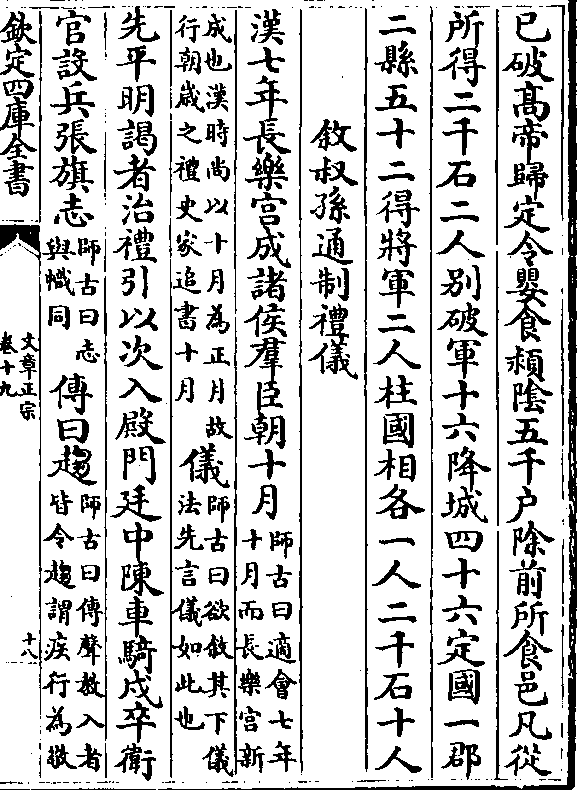 已破髙帝歸定令嬰食頴隂五千户除前所食邑凡從
所得二千石二人别破軍十六降城四十六定國一郡
二縣五十二得將軍二人柱國相各一人二千石十人
敘叔孫通制禮儀
漢七年長樂宫成諸侯羣臣朝十月師古曰適會七年十月而長樂宫新
成也漢時尚以十月為正月故行朝嵗之禮史家追書十月儀師古曰欲敘其下儀法先言儀如此也
先平明謁者治禮引以次入殿門廷中陳車騎戍卒衛
官設兵張旗志師古曰志與幟同傳曰趨師古曰傳聲教入者皆令趨謂疾行為敬
欽定四庫全書
文章正宗
卷十九
十八